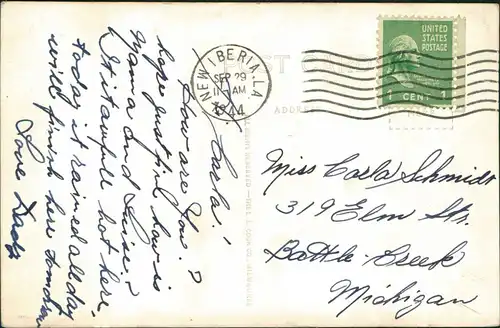 Carla!
How are You?
hope just fine how is
Mama and Susie?
It is awfull hot here,
today it rained all day
will finish here tomorrow
Love Daddy
POST CARD
ADDRESS
NEW IBERIA, LA.
SEP 29
11 AM
1944
UNITED
STATES
POSTAGE
1 CENT 1
Miss Carla Schmidt
319 Elm Str.
Battle-Creek
Michigan